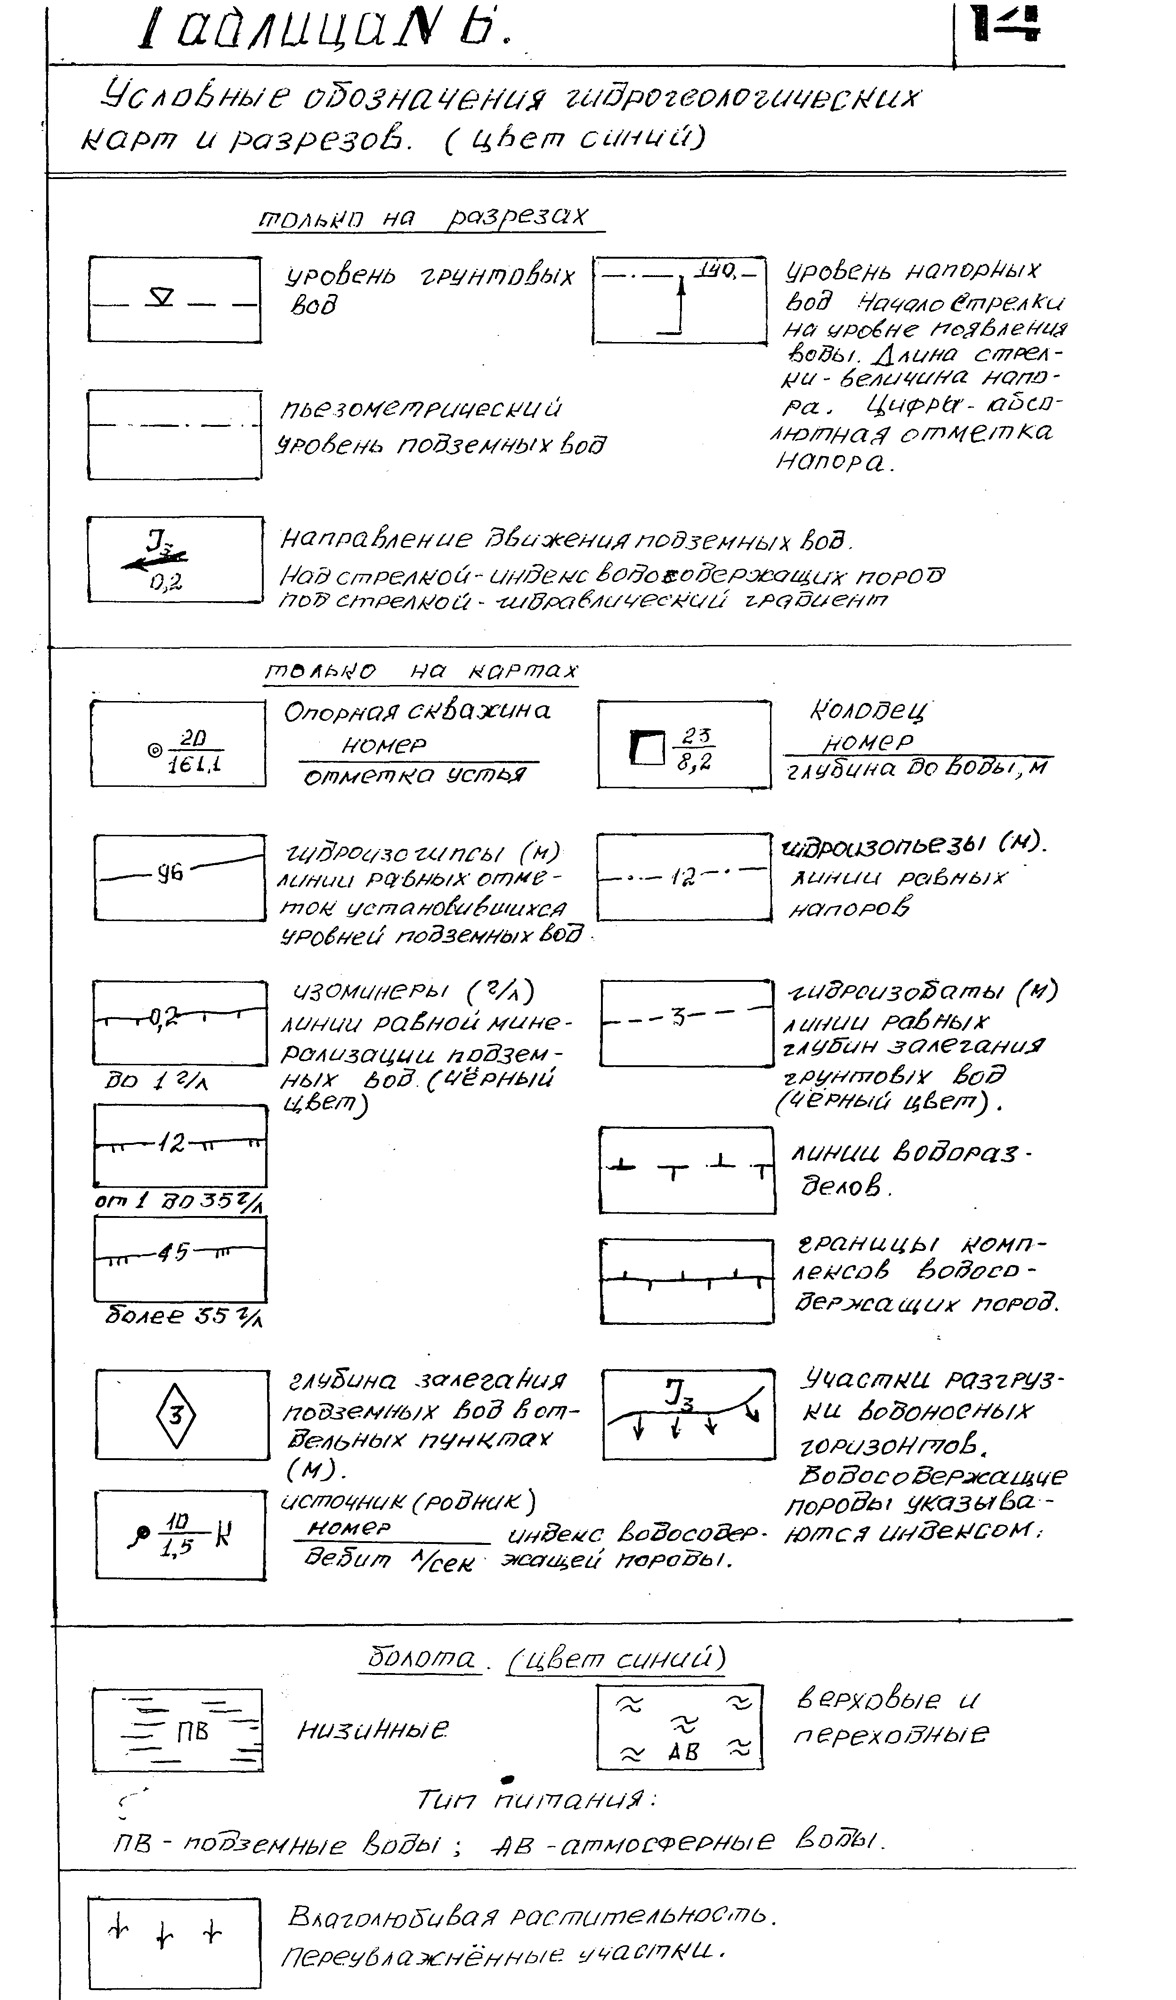 Таблица N 6.
14
Условные обозначения гидрогеологических
карт и разрезов. (цвет синий)
только на разрезах
уровень грунтовых
вод
140,
уровень напорных
вод Начало стрелки
на уровне появления
воды. Длина стрел-
ки-величина напо-
ра. Цифры-абсо-
лютная отметка
напора.
пьезометрический
уровень подземных вод
J3
0,2
Направление движения подземных вод.
Над стрелкой-индекс водосодержащих пород
под стрелкой-гидравлический градиент
только на картах
20
161,1
Опорная скважина
номер
отметка устья
23
8,2
Колодец
номер
глубина до воды, м
96
гидроизогипсы (м)
линии равных отме-
ток установившихся
уровней подземных вод.
12
гидроизопьезы (м).
линии равных
напоров
0,2
до 1 г/л
изоминеры (г/л)
линии равной мине-
рализации подзем-
ных вод. (чёрный
цвет)
12
от 1 до 35 г/л
45
более 35 г/л
3
гидроизобаты (м)
линии равных
глубин залегания
грунтовых вод
(чёрный цвет).
линии водораз-
делов.
границы комп-
лексов водосо-
держащих пород.
3
глубина залегания
подземных вод в от-
дельных пунктах
(м).
J3
Участки разгруз-
ки водоносных
горизонтов.
Водосодержащие
породы указыва-
ются индексом.
10
1,5 К
источник (родник)
номер
дебит л/сек
индекс водосодер-
жащей породы.
болота. (цвет синий)
ПВ
низинные
АВ
верховые и
переходные
Тип питания:
ПВ - подземные воды; АВ - атмосферные воды.
Влаголюбивая растительность.
Переувлажнённые участки.